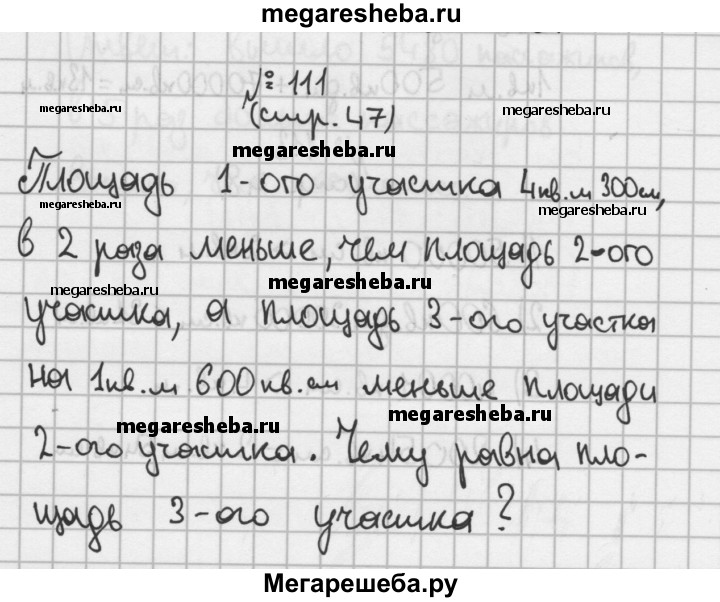 megaresheba.ru
№ 111
(стр. 47)
megaresheba.ru
megaresheba.ru
megaresheba.ru
Площадь 1-ого участка 4кв.м 300см,
megaresheba.ru
megaresheba.ru
в 2 раза меньше, чем площадь 2-ого
megaresheba.ru
megaresheba.ru
участка, а площадь 3-ого участка
на 1кв.м 600кв.см меньше площади
megaresheba.ru
megaresheba.ru
2-ого участка. Чему равна пло-
щадь 3-ого участка?
Мегарешеба.ру